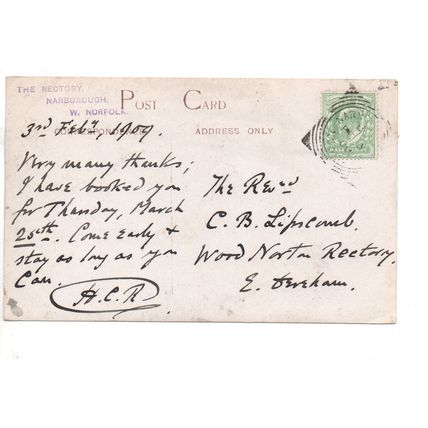 THE RECTORY,
NARBOROUGH,
W. NORFOLK.
POST CARD
CORRESPONDENCE
ADDRESS ONLY
3rd Feby. 1909.
Very many thanks;
I have booked you
for Thursday, March
25th. Come early &
stay as long as you
Can.
H.C.R
The Revd
C. B. Lipscomb.
Wood Norton Rectory.
E. Dereham.